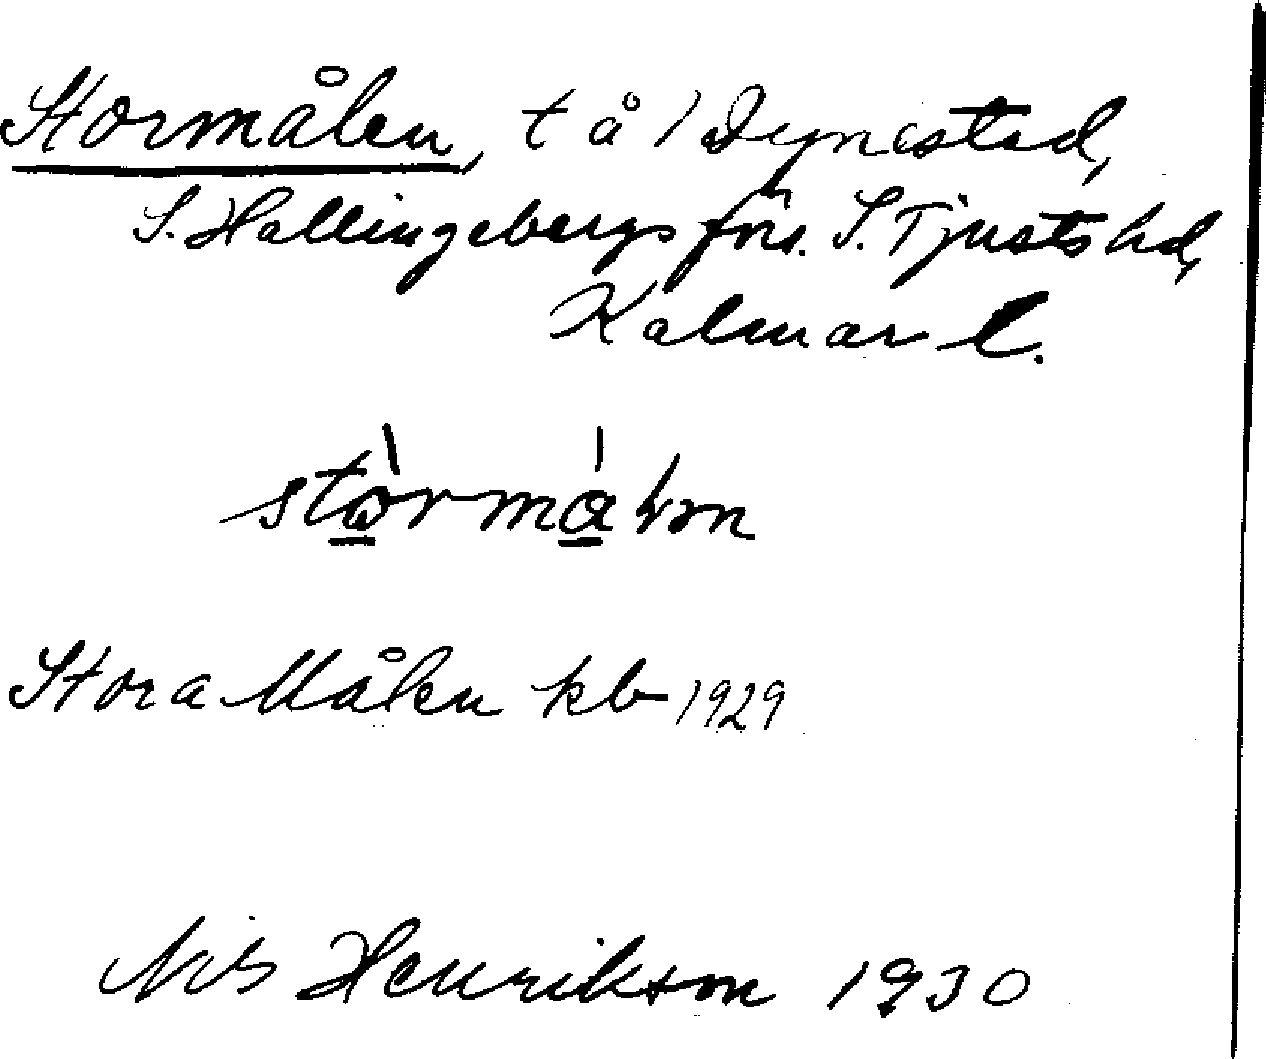 Stormålen, t å 1 Dynestad,
S. Hallingebergs förs. S. Tjusts hd,
Kalmar l.
Stora Målen kb 1929
Nils Henrikson 1930